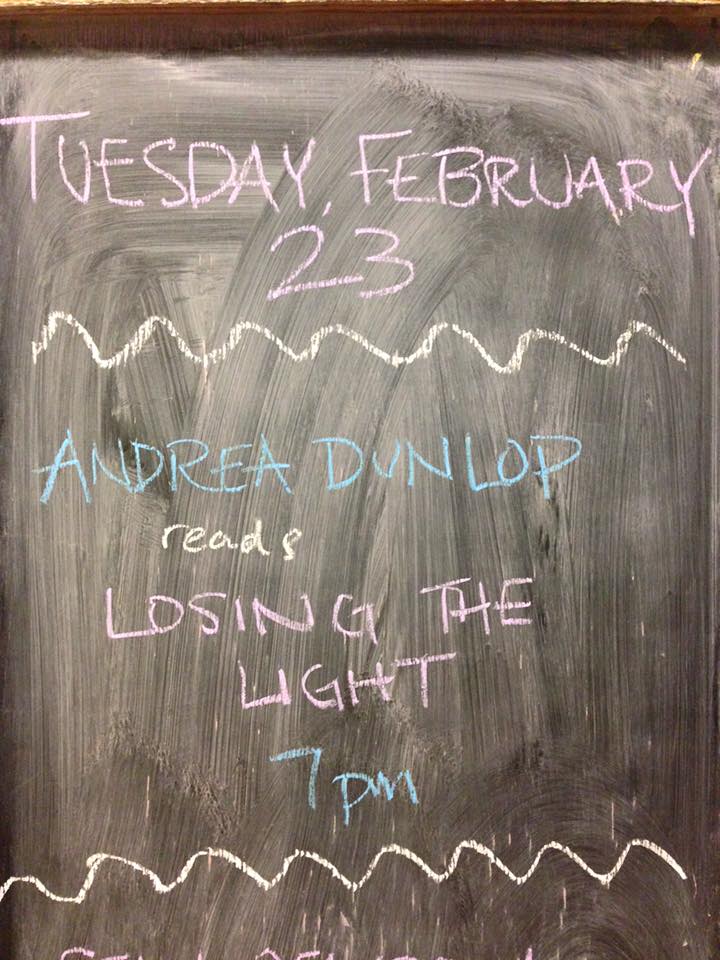 TUESDAY, FEBRUARY
23
ANDREA DUNLOP
reads
LOSING THE
LIGHT
7pm